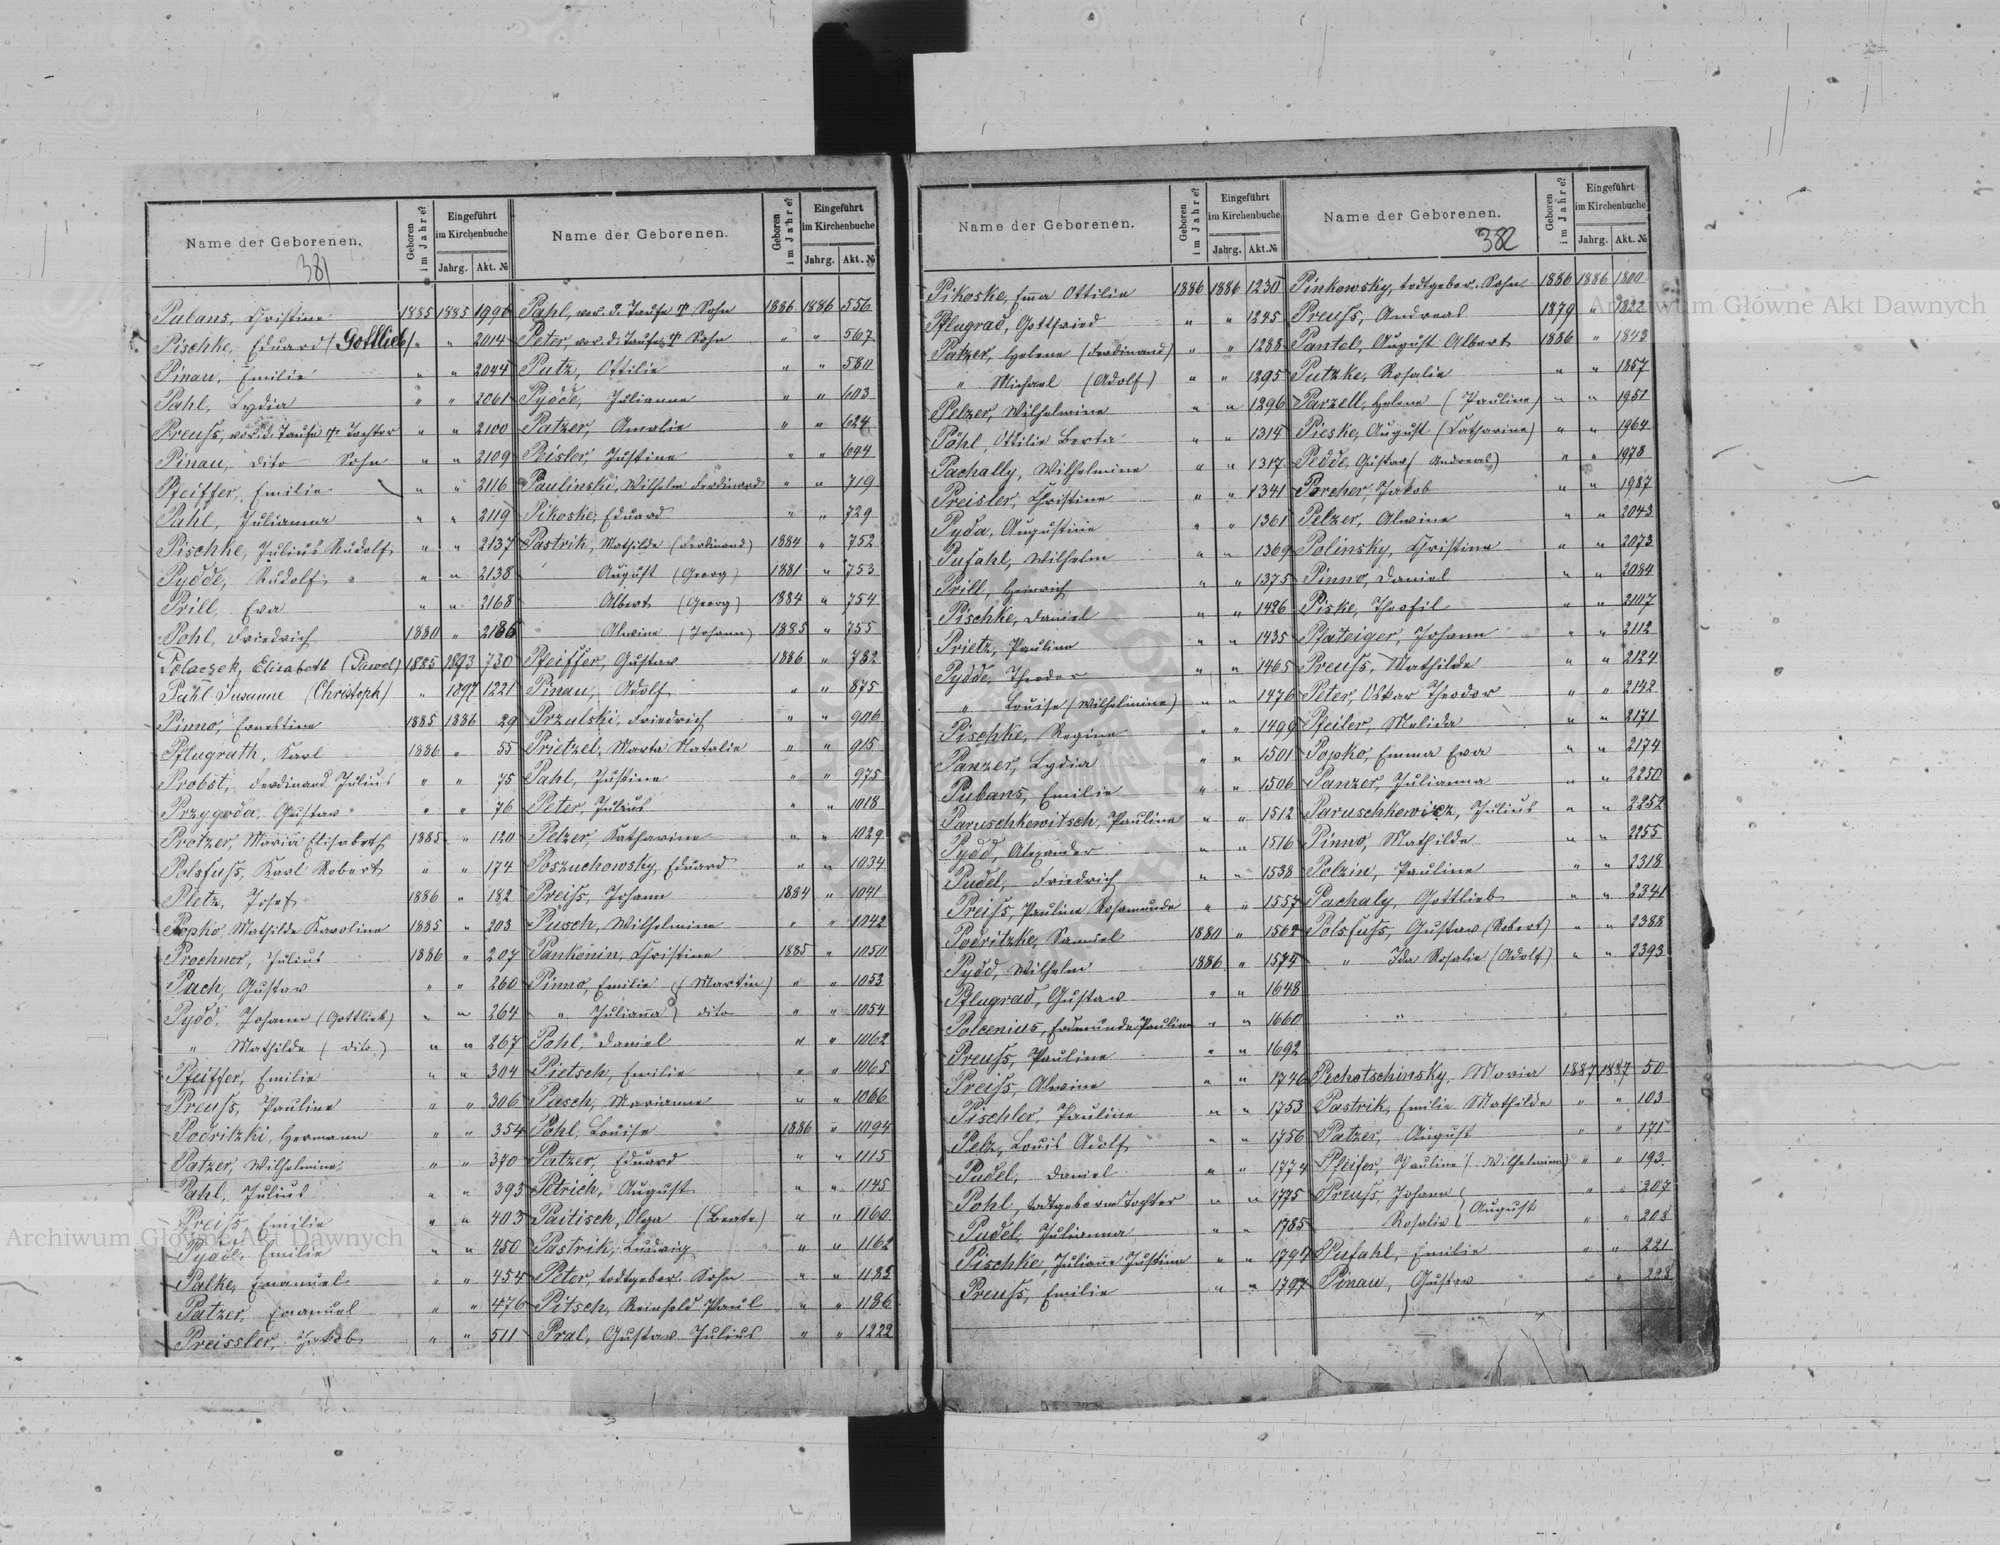 Name der Geborenen.
Geboren im Jahre?
Eingeführt im Kirchenbuche
Jahrg.
Akt. №
381
Pubans, Christine 1885 1885 1996
Pischke, Eduard (Gottlieb) " " 2014
Pinau, Emilie " " 2044
Pahl, Lydia " " 2061
Preuſs, vor. d. Taufe † Tochter " " 2100
Pinau, dito Sohn " " 2109
Pfeiffer, Emilie " " 2116
Pahl, Julianna " " 2119
Pischke, Julius Rudolf " " 2137
Pydde, Rudolf " " 2138
Prill, Eva " " 2168
Pohl, Friedrich 1880 " 2186
Polaczek, Elisabeth (Pawel) 1885 1893 730
Pahl Susanne (Christoph) " 1897 1221
Pinno, Ernestine 1885 1886 29
Pflugrath, Karl 1886 " 55
Probst, Ferdinand Julius " " 75
Przygoda, Gustav " " 76
Protzer, Maria Elisabeth 1885 " 120
Polsfuſs, Karl Robert " " 174
Pletz, Josef 1886 " 182
Popko, Mathilde Karoline 1885 " 203
Prochner, Julius 1886 " 207
Pach, Gustav " " 260
Pydd, Johann (Gottlieb) " " 264
" Mathilde (dito) " " 267
Pfeiffer, Emilie " " 304
Preuſs, Pauline " " 306
Podritzki, Hermann " " 354
Patzer, Wilhelmine " " 370
Pahl, Julius " " 393
Preiſs, Emilie " " 403
Pydde, Emilie " " 450
Palke, Emanuel " " 454
Patzer, Emanuel " " 476
Preissler, Jakob " " 511
Name der Geborenen.
Geboren im Jahre?
Eingeführt im Kirchenbuche
Jahrg.
Akt. №
Pahl, vor. d. Taufe † Sohn 1886 1886 556
Peter, vor. d. Taufe † Sohn " " 567
Putz, Ottilie " " 580
Pydde, Julianne " " 603
Patzer, Amalie " " 624
Peisler, Justine " " 644
Paulinski, Wilhelm Ferdinand " " 719
Pikoske, Eduard " " 729
Pastrik, Mathilde (Ferdinand) 1884 " 752
August (Georg) 1881 " 753
Albert (Georg) 1884 " 754
Alwine (Johann) 1885 " 755
Pfeiffer, Gustav 1886 " 782
Pinau, Adolf " " 875
Przulski, Friedrich " " 906
Prietzel, Marta Natalie " " 915
Pahl, Justine " " 975
Peter, Julius " " 1018
Pelzer, Katharine " " 1029
Poszuchowsky, Eduard " " 1034
Preiſs, Johann 1884 " 1041
Pusch, Wilhelmine " " 1042
Pankonin, Christine 1885 " 1050
Pinno, Emilie (Martin) " " 1053
" Julianna) dito " " 1054
Pohl, Daniel " " 1062
Pietsch, Emilie " " 1065
Pusch, Marianne " " 1066
Pohl, Louise 1886 " 1094
Patzer, Eduard " " 1115
Petrich, August " " 1145
Paitisch, Olga (Beate) " " 1160
Pastrik, Ludwig " " 1162
Peter, todtgebor. Sohn " " 1183
Pitsch, Reinhold Paul " " 1186
Pral, Gustav Julius " " 1222
Name der Geborenen.
Geboren im Jahre?
Eingeführt im Kirchenbuche
Jahrg.
Akt. №
Pikoske, Emma Ottilie 1886 1886 1230
Pflugrad, Gottfried " " 1245
Patzer, Helene (Ferdinand) " " 1288
" Michael (Adolf) " " 1295
Pelzer, Wilhelmine " " 1296
Pöhl, Ottilie Berta " " 1314
Pachally, Wilhelmine " " 1317
Preisler, Christine " " 1341
Pyda, Augustine " " 1361
Pufahl, Wilhelm " " 1369
Prill, Heinrich " " 1375
Pischke, Daniel " " 1426
Prietz, Pauline " " 1435
Pydde, Theodor " " 1465
" Louise (Wilhelmine) " " 1476
Pischke, Regine " " 1499
Panzer, Lydia " " 1501
Pubans, Emilie " " 1506
Paruschkewitsch, Pauline " " 1512
Pydd, Alexander " " 1516
Pudel, Friedrich " " 1538
Preiſs, Pauline Rosamunde " " 1557
Podritzke, Samuel 1880 " 1562
Pydd, Wilhelm 1886 " 1574
Pflugrad, Gustav " " 1648
Polcenius, Erdmunde Pauline " " 1660
Preuſs, Pauline " " 1692
Preiſs, Alwine " " 1746
Pischler, Pauline " " 1753
Pelz, Louis Adolf " " 1756
Pudel, Daniel " " 1774
Pohl, todtgeborne Tochter " " 1775
Pudel, Julianna " " 1785
Pischke, Julianne Justine " " 1794
Preuſs, Emilie " " 1797
Name der Geborenen.
382
Geboren im Jahre?
Eingeführt im Kirchenbuche
Jahrg.
Akt. №
Pinkowsky, todtgebor. Sohn 1886 1886 1800
Preuſs, Andreas 1879 " 1822
Pantel, August Albert 1886 " 1843
Putzke, Rosalie " " 1857
Parzell, Helene (Pauline) " " 1951
Pieske, August (Catharine) " " 1964
Pedde, Gustav (Andreas) " " 1978
Porcher, Jakob " " 1987
Pelzer, Alwine " " 2043
Polinsky, Christine " " 2073
Pinno, Daniel " " 2084
Piske, Theofil " " 2107
Pfateiger, Johann " " 2112
Preuſs, Mathilde " " 2124
Peter, Oskar Theodor " " 2142
Pfeiler, Melida " " 2171
Popko, Emma Eva " " 2174
Panzer, Julianna " " 2250
Paruschkewicz, Julius " " 2252
Pinno, Mathilde " " 2255
Polzin, Pauline " " 2318
Pachaly, Gottlieb " " 2341
Polsfuſs, Gustav (Robert) " " 2388
" Ida Rosalie (Adolf) " " 2393
"
Pechotschinsky, Maria 1887 1887 50
Pastrik, Emilie Mathilde " " 103
Patzer, August " " 171
Pfeifer, Pauline (Wilhelmine) " " 193
Preuſs, Johann " " 207
Rosalie } August " " 208
Pufahl, Emilie " " 221
Pinau, Gustav " " 228
Archiwum Główne Akt Dawnych
Archiwum Główne Akt Dawnych